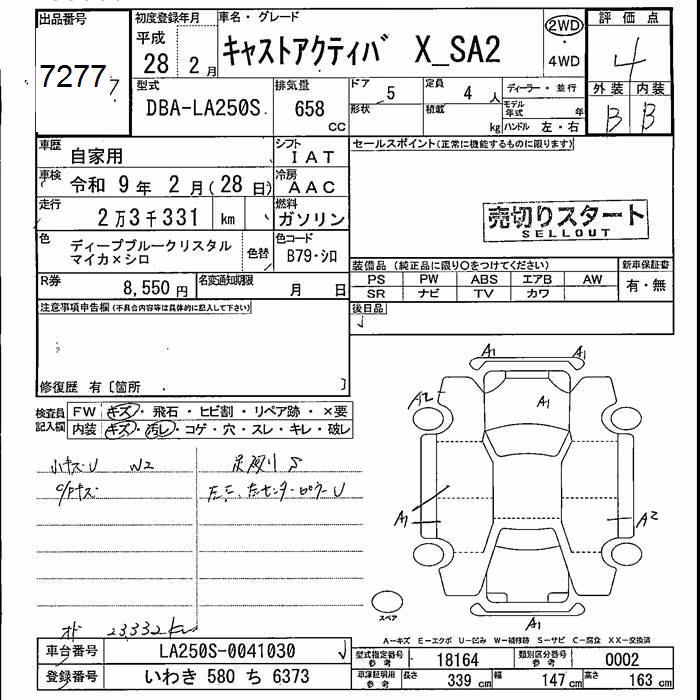 出品番号
7277
初度登録年月
平成
28 2 月
車名・グレード
キャストアクティバ X_SA2
2WD
・
4WD
評価点
4
外装 内装
B B
型式
DBA-LA250S
排気量
658
CC
ドア
5
形状
定員
4 人
積載
kg
ディーラー・並行
モデル年式 年
ハンドル 左・右
車歴
自家用
シフト
IAT
車検
令和 9 年 2 月 (28 日)
冷房
AAC
走行
2万3千331 km
燃料
ガソリン
色
ディープブルークリスタル
マイカ×シロ
色替
色コード
B79-シロ
R券
8,550円
名変通知期限
月 日
セールスポイント(正常に機能するものに限ります)
売切りスタート
SELLOUT
装備品 (純正品に限り○をつけてください)
PS PW ABS エアB AW
SR ナビ TV カワ
新車保証書
有・無
後日品
注意事項申告欄(不具合内容等は具体的に記入して下さい)
修復歴 有〔箇所 〕
検査員
記入欄
FW キズ・飛石・ヒビ割・リペア跡・×要
内装 キズ・汚レ・コゲ・穴・スレ・キレ・破レ
小キズU W2
C/Pキズ
足廻りS
オド 23332km
A1 A1
A2 A1
A1 A2
A1
スペア
A-キズ E-エクボ U-凹み W-補修跡 S-サビ C-腐食 XX-交換済
車台番号
LA250S-0041030
登録番号
いわき 580 ち 6373
型式指定番号
参考
18164
類別区分番号
参考
0002
車庫証明用
参考
長さ 339 cm 幅 147 cm 高さ 163 cm